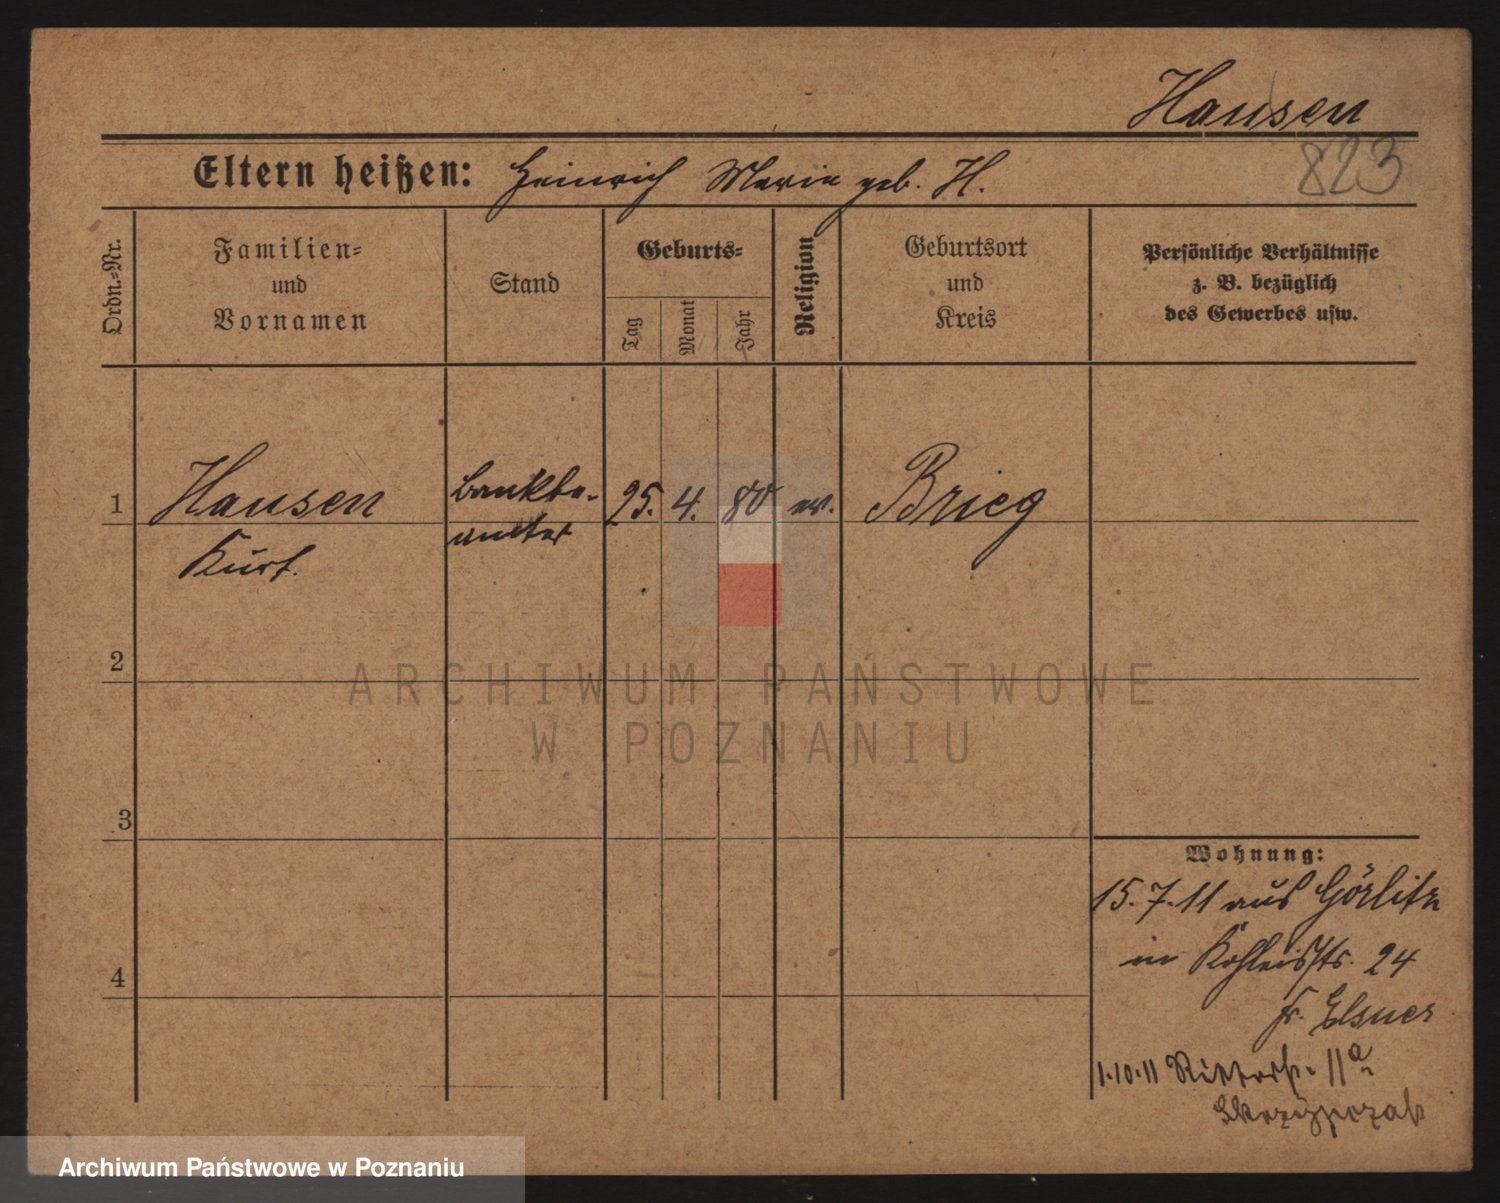 Hausen
823
Eltern heißen: Heinrich Marie geb. H.
Ordn.-Nr.
Familien-
und
Vornamen
Stand
Geburts-
Tag
Monat
Jahr
Religion
Geburtsort
und
Kreis
Persönliche Verhältnisse
z. B. bezüglich
des Gewerbes usw.
1 Hausen Bankbe- 25. 4. 80 ev. Brieg
Kurt. amter
2
3
4
Wohnung:
15.7.11 aus Görlitz
in 24
fr. Elsner
1.10.11 Ritterstr. 11a
Skrzypczak
ARCHIWUM PAŃSTWOWE
W POZNANIU
Archiwum Państwowe w Poznaniu